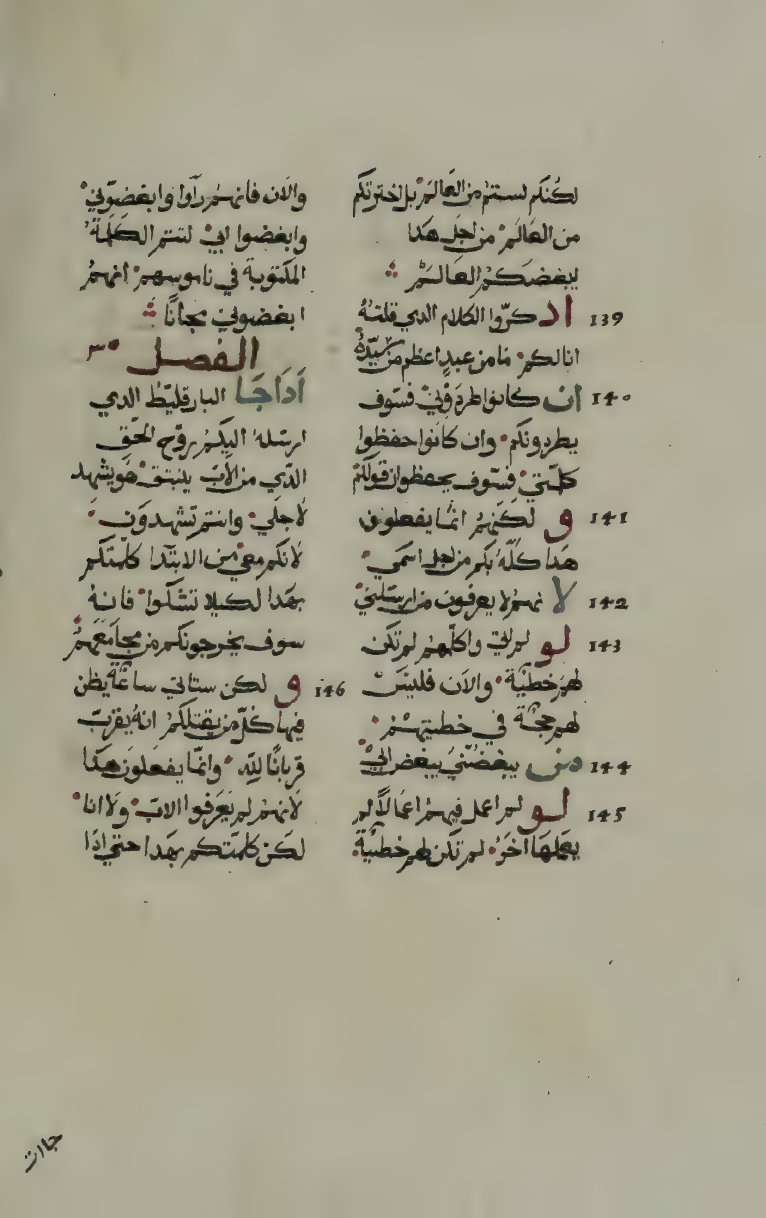 لكنكم لستم من العالم بل اخترتكم
من العالم من اجل هدا
يبغضكم العالم
139 ادكروا الكلام الدي قلته
انا لكم ما من عبد اعظم من سيّده
140 ان كانوا طردوني فسوف
يطردونكم وان كانوا حفظوا
كلمتي فسوف يحفظوا قولكم
141 و لكنهم انما يفعلون
هدا كلّه بكم من اجل اسمي
142 لا نهم لا يعرفون من ارسلني
143 لو لم اتي واكلّمهم لم تكن
لهم خطيّة والان فليس
لهم حجّة في خطيتهم
144 من يبغضني يبغض ابي
145 لو لم اعمل فيهم اعمالاً لم
يعملها اخر لم تكن لهم خطيّة
والان فانهم راوا وابغضوني
وابغضوا ابي لتتم الكلمة
المكتوبة في ناموسهم انهم
ابغضوني مجاناً
الفصل ٣٥
اداجا البارقليط الدي
ارسله اليكم روح الحق
الدي من الاب ينبتق هو يشهد
لاجلي وانتم تشهدون
لانكم معي من الابتدا كلمتكم
بهدا لكيلا تشكوا فانه
سوف يخرجونكم من مجامعهم
146 و لكن ستاتي ساعة يظن
فيها كلّ من يقتلكم انه يقرب
قرباناً لله وانما يفعلون هدا
لانهم لم يعرفوا الاب ولا انا
لكن كلمتكم بهدا حتي ادا
جاات